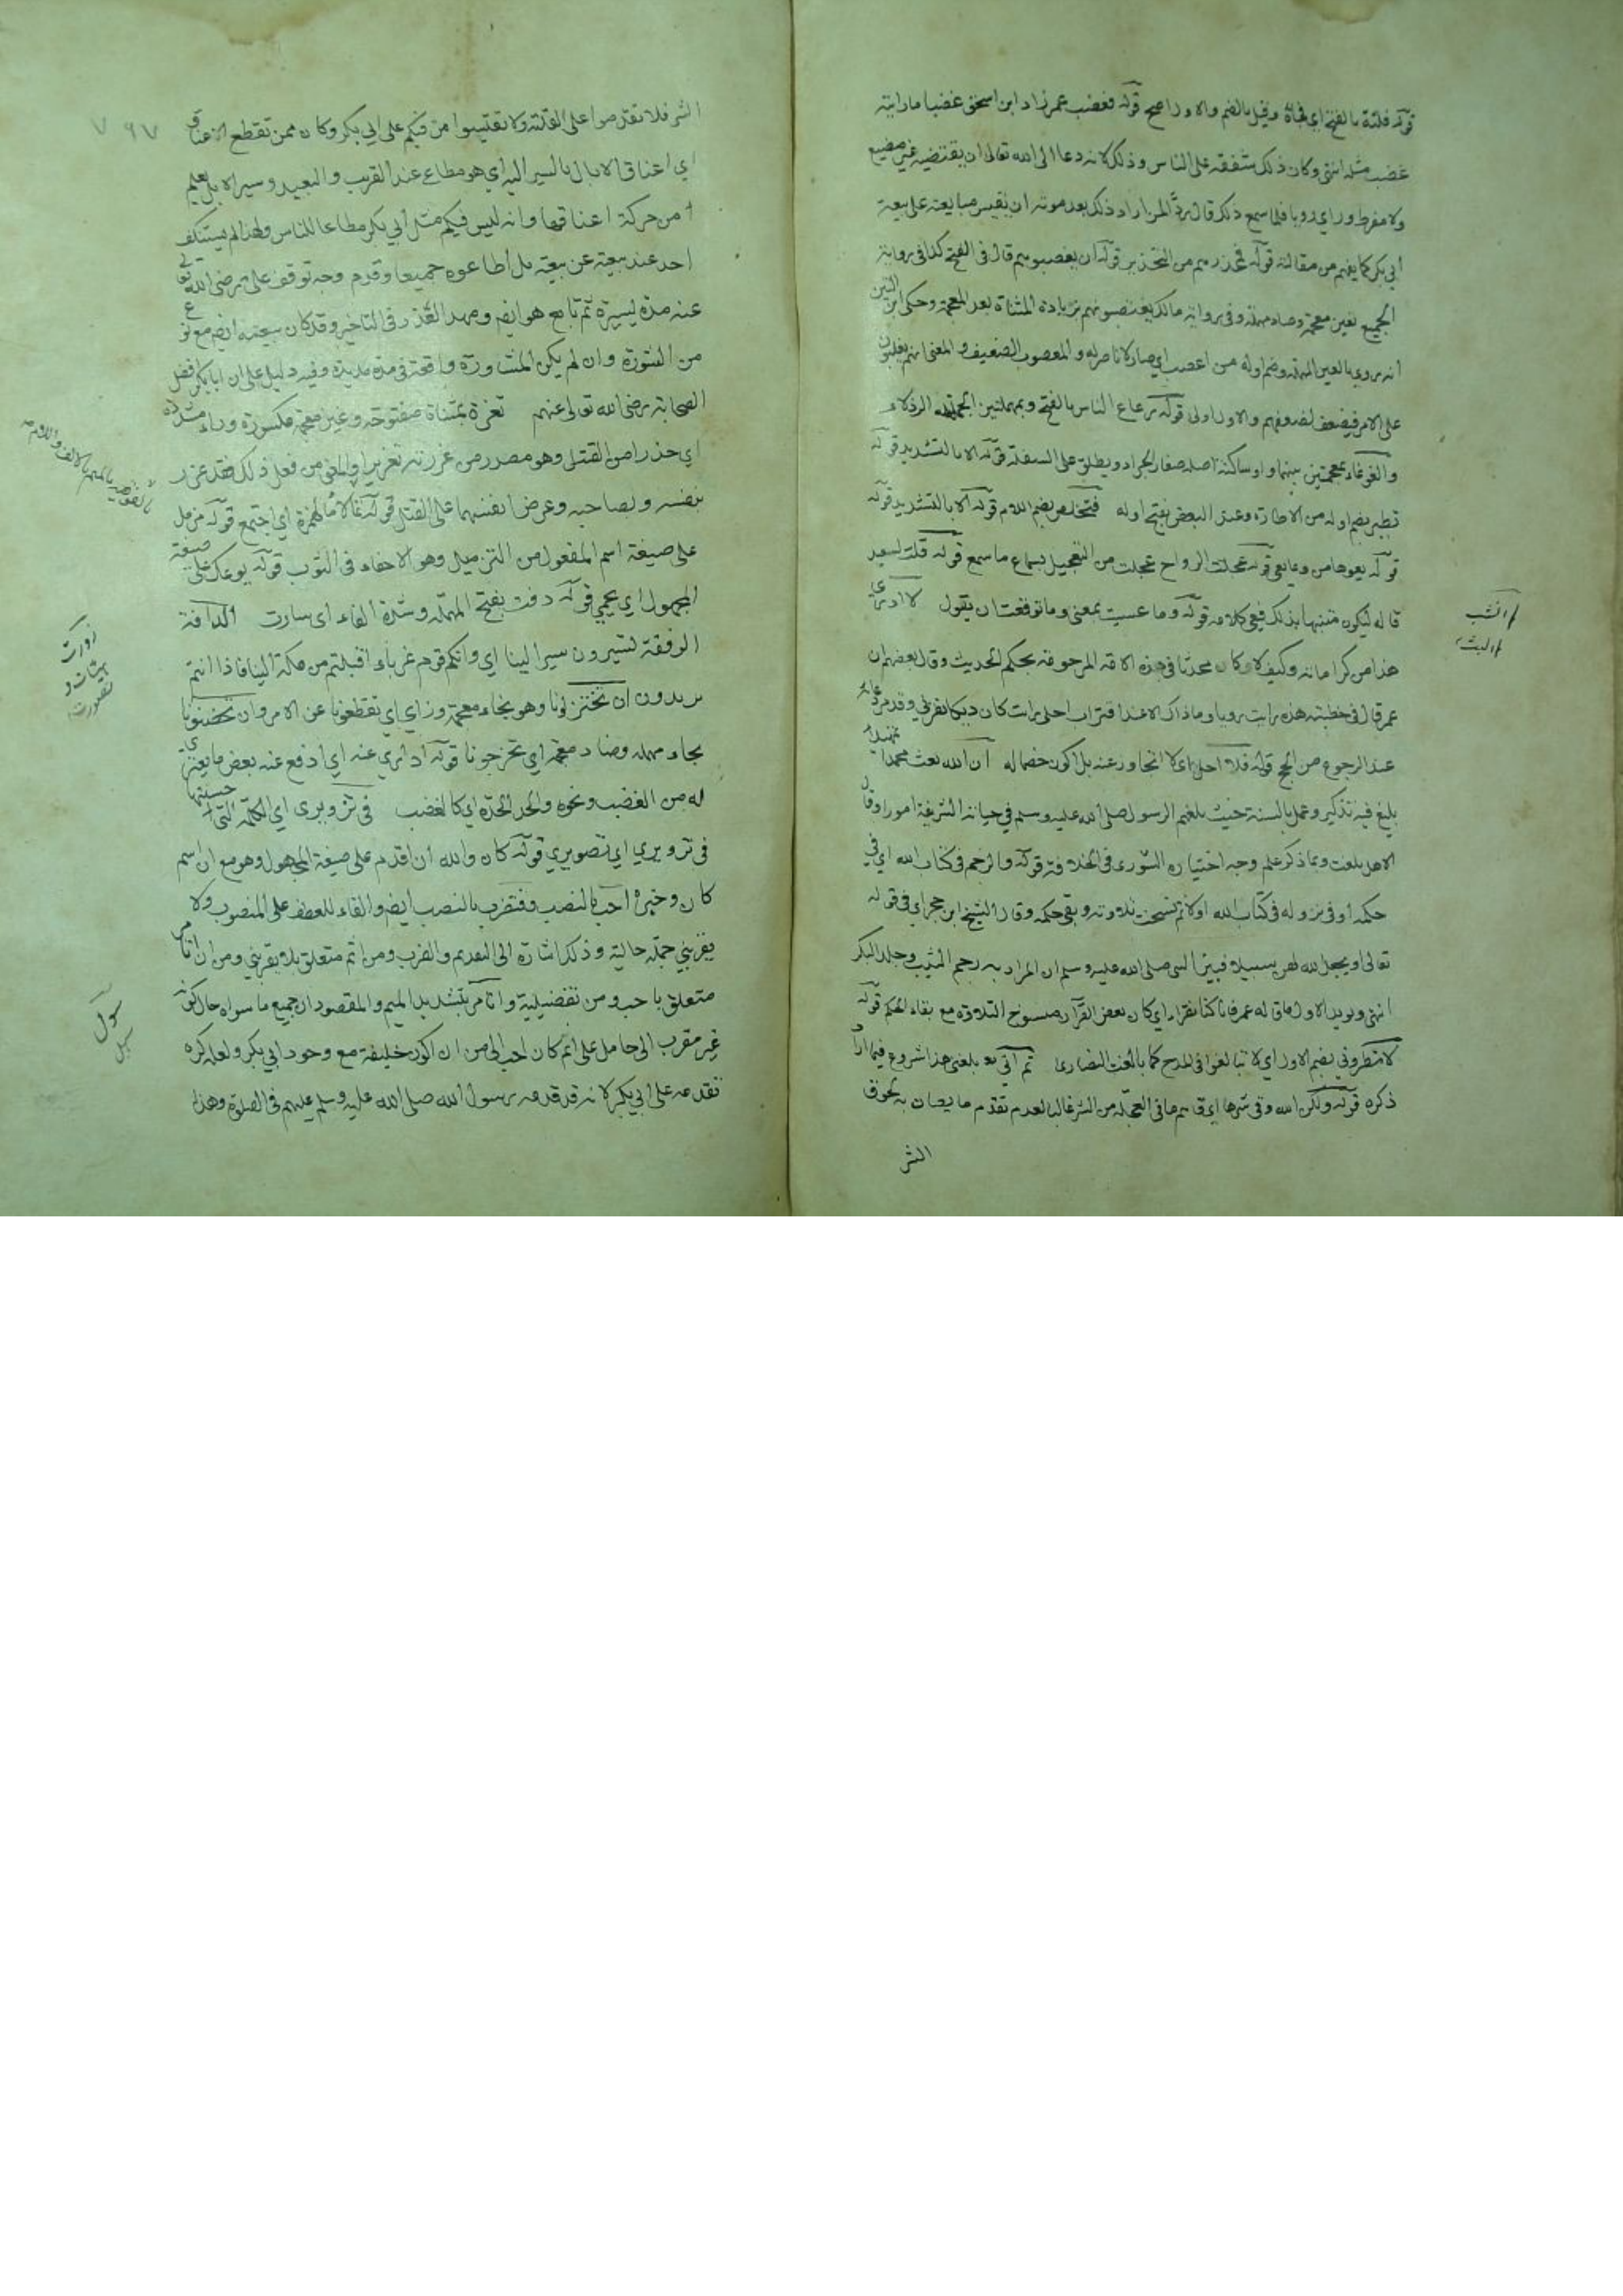 قوله فلتة بالفتح اي فجاة وقيل بالضم والاول اصح قوله فغضب عمر زاد ابن اسحق غضبا ما رايته
غضب مثله انتهى وكان ذلك شفقة على الناس وذلك لانه دعا الى الله تعالى ان يقبضه غير مضيع
ولا مفرط وراى رويا فلما سمع ذلك قال ردا لمن اراد ذلك بعد موته ان يقيس مبايعته على بيعة
أبي بكر كما يفهم من مقالته قوله فمحذرهم من التحذير قوله ان يغصبوهم قال في الفتح كذا في رواية
الجميع بغين معجمة وصاد مهملة وفي رواية مالك يغتصبونهم بزيادة المثناة بعد المعجمة وحكى ابن التين
انه روي بالعين المهملة وضم اوله من اعضب اي صار لا ناصر له والمعضوب الضعيف والمعنى انهم يغلبون
على الامر فيضعف لضعفهم والاول اولى قوله رعاع الناس بالفتح وبمهملتين الجهلة الرذلاء
والغوغاء بمعجمتين بينهما واو ساكنة اصله صغار الجراد ويطلق على السفلة قوله الا بالتشديد قوله
تطير بضم اوله من الاطارة وعند البعض بفتح اوله فتخلص بضم اللام قوله الا بالتشديد قوله
قوله يعوها من وعا يعي قوله عجلت الرواح عجلت من التعجيل بسماع ما سمع قوله قلت لسعيد
قاله ليكون متنبها بذلك فيعي كلامه قوله وما عسيت بمعنى وما توقعت ان يقول لا ادري
هذا من كراماته وكيف لا وكان محدثا في هذه الامة المرحومة بحكم الحديث وقال بعضهم ان
عمر قال في خطبته هذه رايت رويا وما ذاك الا عند اقتراب اجلي رايت كان ديكا نقرني وقد مر دعائه
عند الرجوع من الحج قوله فلا احل اي لا اتجاوز عنه بل اكون خصما له ان الله بعث محمدا تمهيدا
بليغ فيه تذكير وعمل بالسنة حيث بلغهم الرسول صلى الله عليه وسلم في حياته الشريفة امورا وقال
الا هل بلغت وبما ذكر علم وجه اختياره الشورى في الخلافة قوله والرجم في كتاب الله اي في
حكمه أو في نزوله في كتاب الله اولا ثم نسخت تلاوته وبقي حكمه وقال الشيخ ابن حجر اي في قوله
تعالى او يجعل الله لهن سبيلا فبين النبي صلى الله عليه وسلم ان المراد به رجم الثيب وجلد البكر
انتهى ويويد الاول ما قاله عمر فانا كنا نقراء اي كان بعض القرآن منسوخ التلاوة مع بقاء الحكم قوله
لا تطروني بضم الاول اي لا تبالغوا في المدح كما بالغت النصارى ثم انه بلغني هذا شروع فيما اراد
ذكره قوله ولكن الله وقى شرها اي وقاهم ما في العجلة من الشر غالبا لعدم تقدم ما يصان به تخوف
الشر
الثيب
البث
٧٩٧
الشر فلا تقدموا على الفلتة ولا تقتبسوا من فيكم على ابي بكر وكان ممن تقطع الاعناق
اي اعناق الابال بالسير اليه اي هو مطاع عند القريب والبعيد وسير الابل يعلم
من حركة اعناقها وانه ليس فيكم مثل أبي بكر مطاعا للناس ولهذا لم يستنكف
احد عند بيعته عن بيعته بل أطاعوه جميعا وقدم وجه توقف علي رضى الله تعالى
عنه مدة يسيرة ثم تابع هو ايضا ومهد العذر في التاخير وقد كان بيعته ايضا مع نوع
من الشورة وان لم يكن المشاورة واقعة في مدة مديدة وفيه دليل على ان ابا بكر افضل
الصحابة رضى الله تعالى عنهم تغرة بمثناة مفتوحة وغين معجمة مكسورة وراء مشددة
اي حذرا من القتل وهو مصدر من غررته تغريرا والمعنى من فعل ذلك فقد غرر
بنفسه وبصاحبه وعرض انفسهما على القتل قوله تمالا مالهمزة اي اجتمع قوله مزمل
على صيغة اسم المفعول من التزميل وهو الاخفاء في الثوب قوله يوعك على صيغة
المجهول اي يحمى قوله دفت بفتح المهملة وشدة الفاء اى سارت الدافة
الرفقة تسيرون سيرا لينا اي وانكم قوم غرباء اقبلتم من مكة الينا فاذا انتم
يريدون ان تختزلونا وهو بخاء معجمة وزاي اي تقطعونا عن الامر وان تحضنونا
بحاء مهملة وضاد معجمة اي تخرجونا قوله أداري عنه اي ادفع عنه بعض ما يعتري
له من الغضب ونحوه والحد الحدة اي كالغضب في تزويري اي الكلمة التي حسنتها
في تزويري اي تصويري قوله كان والله أن اقدم على صيغة المجهول وهو مع ان اسم
كان وخبره احب بالنصب وفتضرب بالنصب ايضا والفاء للعطف على المنصوب ولا
يقربني جملة حالية وذلك اشارة الى التقديم والضرب ومن اثم متعلق بلا يقربني ومن ان اتامر
متعلق باحب ومن تفضيلية واتامر بتشديد الميم والمقصود ان جميع ما سواه حال كونه
غير مقرب الى حامل على اثم كان احب الى من ان اكون خليفة مع وجود ابي بكر ولعله كره
تقدمه على ابي بكر لانه قد قدمه رسول الله صلى الله عليه وسلم عليهم في الصلوة وهذا
زورت
هيئات و
تصورت
سول